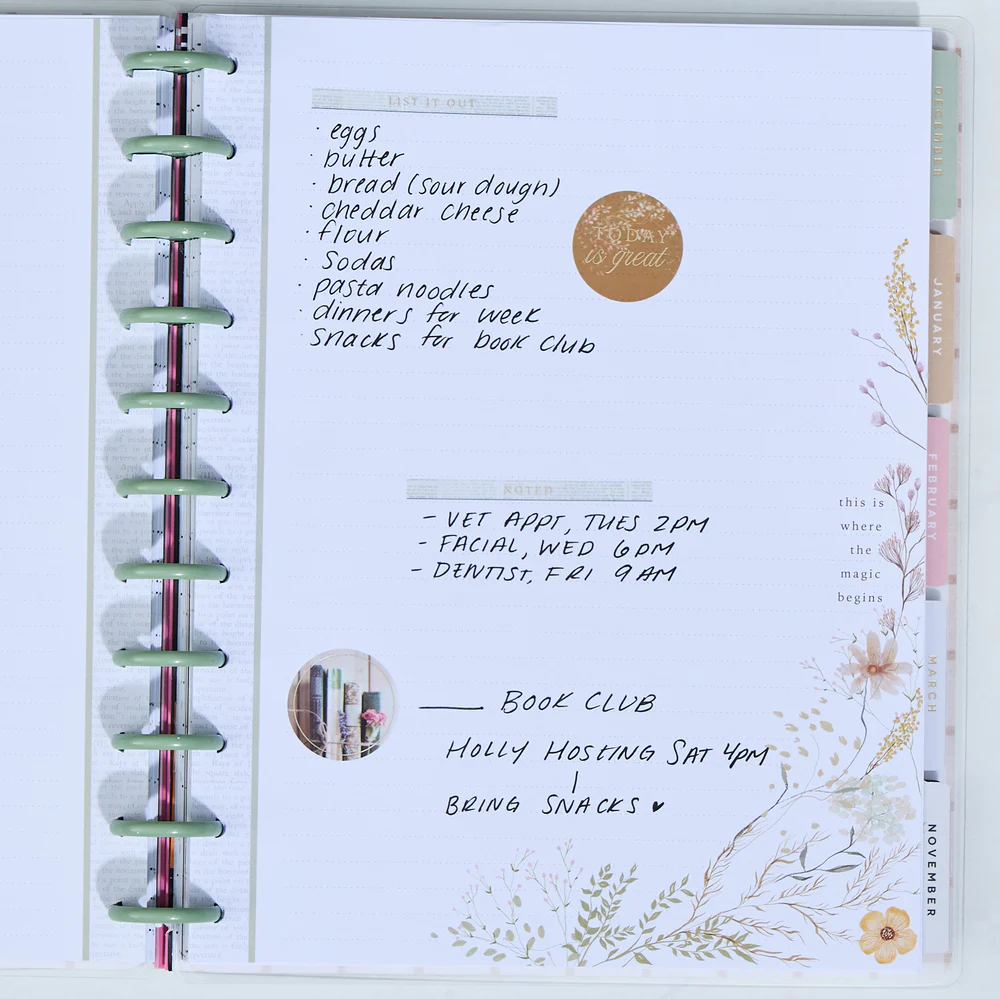 LIST IT OUT
· eggs
· butter
· bread (sour dough)
· cheddar cheese
· flour
· Sodas
· pasta noodles
· dinners for week
· snacks for book club
TODAY
is great
NOTED
- VET APPT, TUES 2PM
- FACIAL, WED 6PM
- DENTIST, FRI 9AM
this is
where
the
magic
begins
BOOK CLUB
HOLLY HOSTING SAT 4PM
BRING SNACKS ♥
DECEMBER
JANUARY
FEBRUARY
MARCH
NOVEMBER